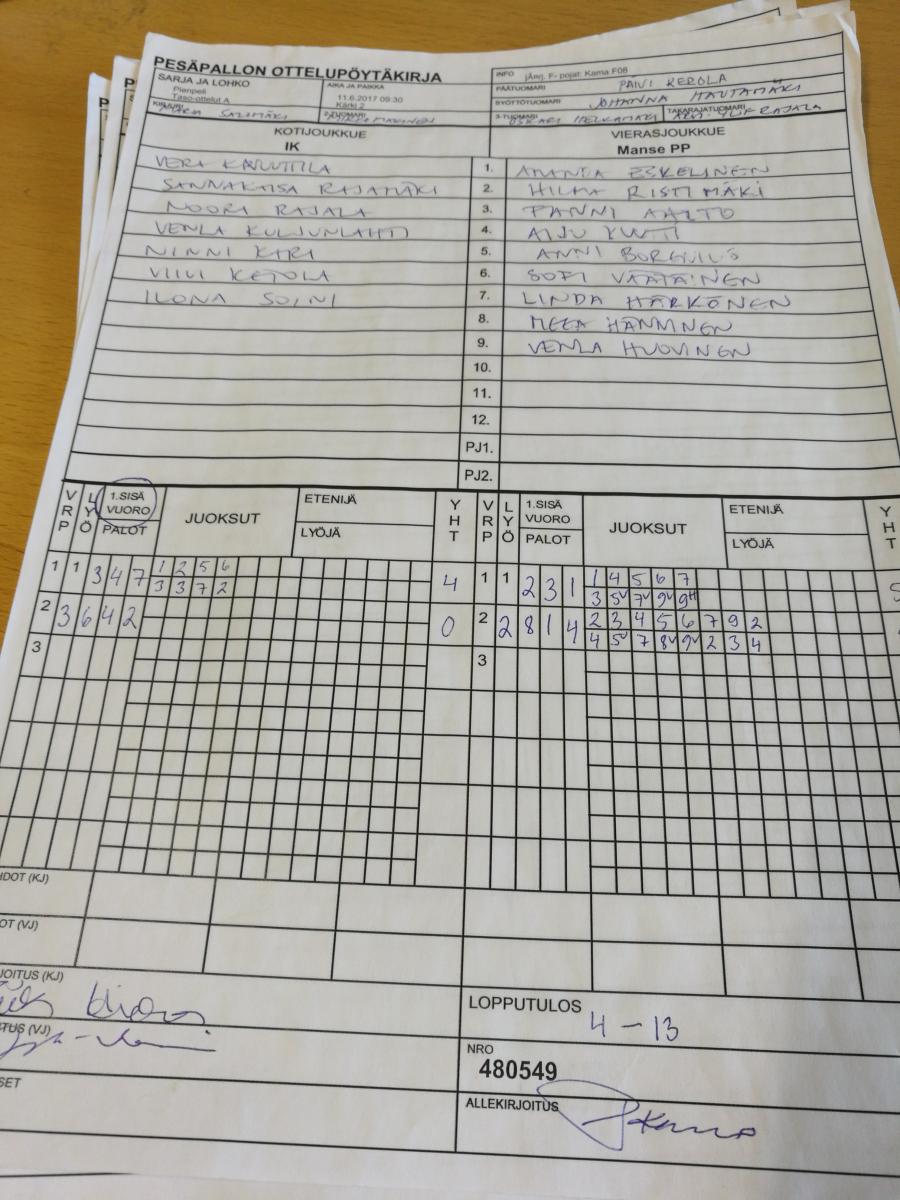 PESÄPALLON OTTELUPÖYTÄKIRJA
SARJA JA LOHKO
Pienpeli
Taso-ottelut A
AIKA JA PAIKKA
11.6.2017 09:30
Kärki 2
INFO jÄrj. F- pojat: Kama F08
PÄÄTUOMARI PÄIVI KEROLA
SYÖTTÖTUOMARI JOHANNA HAUTAMÄKI
KIRJURI MARIA SALOMÄKI
2-TUOMARI
3-TUOMARI OSKARI
TAKARAJATUOMARI
KOTIJOUKKUE
IK
VIERASJOUKKUE
Manse PP
VERA 1. AMANDA ESKELINEN
SANNAKAISA RAJAMÄKI 2. HILMA RISTIMÄKI
NOORA RAJALA 3. FANNI AALTO
VENLA KULJUNLAHTI 4. AIJU
NINNI KARI 5. ANNI BORENIUS
VIIVI KETOLA 6. SOFI VÄÄTÄINEN
ILONA SOINI 7. LINDA HÄRKÖNEN
8. MEEA HÄNNINEN
9. VENLA HUOVINEN
10.
11.
12.
PJ1.
PJ2.
VRP LYÖ 1.SISÄ VUORO PALOT JUOKSUT ETENIJÄ LYÖJÄ YHT VRP LYÖ 1.SISÄ VUORO PALOT JUOKSUT ETENIJÄ LYÖJÄ YHT
1 1 3 4 7 1 2 5 6 4 1 1 2 3 1 1 4 5 6 7 5
3 3 7 2 3 5v 7v 9v 9H
2 3 6 4 2 0 2 2 8 1 4 2 3 4 5 6 7 9 2
4 5v 7 8v 9v 2 3 4
3 3
HDOT (KJ)
OT (VJ)
JOITUS (KJ)
TUS (VJ)
SET
LOPPUTULOS
4 - 13
NRO
480549
ALLEKIRJOITUS